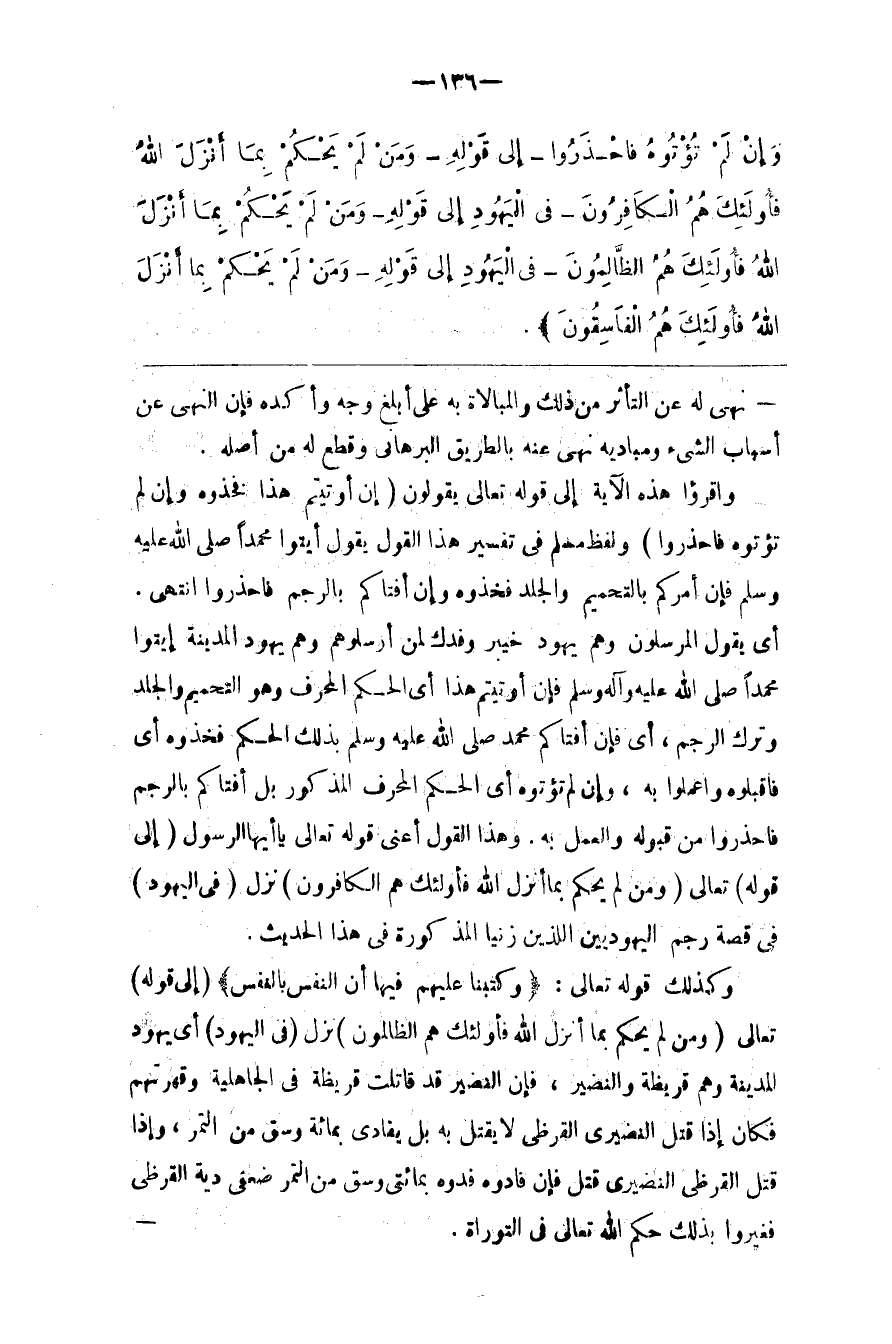 —١٣٦—
وَإِنْ لَمْ تُؤْتُوهُ فَاحْذَرُوا - إلى قَوْلِهِ - وَمَنْ لَمْ يَحْكُمْ بِمَا أَنْزَلَ اللهُ
فَأُولَئِكَ هُمُ الْكَافِرُونَ - فى الْيَهُودِ إلى قَوْلِهِ - وَمَنْ لَمْ يَحْكُمْ بِمَا أَنْزَلَ
اللهُ فَأُولَئِكَ هُمُ الظَّالِمُونَ - فى الْيَهُودِ إلى قَوْلِهِ - وَمَنْ لَمْ يَحْكمْ بِما أَنْزَلَ
اللهُ فَأُولَئِكَ هُمُ الْفَاسِقُونَ ﴾ .
— نهى له عن التأثر من ذلك والمبالاة به على أبلغ وجه وأكده فإن النهى عن
أسباب الشىء ومباديه نهى عنه بالطريق البرهانى وقطع له من أصله .
واقرؤا هذه الآية إلى قوله تعالى يقولون ( إن أوتيتم هذا فخذوه وإن لم
تؤتوه فاحذروا ) ولفظ مسلم فى تفسير هذا القول يقول أيتوا محمداً صلى الله عليه
وسلم فإن أمركم بالتحميم والجلد فخذوه وإن أفتاكم بالرجم فاحذروا انتهى .
أى يقول المرسلون وهم يهود خيبر وفدك لمن أرسلوهم وهم يهود المدينة إيتوا
محمداً صلى الله عليه وآله وسلم فإن أوتيتم هذا أى الحكم المحرف وهو التحميم والجلد
وترك الرجم ، أى فإن أفتاكم محمد صلى الله عليه وسلم بذلك الحكم فخذوه أى
فاقبلوه واعملوا به ، وإن لم تؤتوه أى الحكم المحرف المذكور بل أفتاكم بالرجم
فاحذروا من قبوله والعمل به . وهذا القول أعنى قوله تعالى ياأيها الرسول ( إلى
قوله ) تعالى ( ومن لم يحكم بما أنزل الله فأولئك هم الكافرون ) نزل ( فى اليهود )
فى قصة رجم اليهوديين اللذين زنيا المذكورة فى هذا الحديث .
وكذلك قوله تعالى : ﴿ وكتبنا عليهم فيها أن النفس بالنفس ﴾ (إلى قوله)
تعالى ( ومن لم يحكم بما أنزل الله فأولئك هم الظالمون ) نزل (فى اليهود) أى يهود
المدينة وهم قريظة والنضير ، فإن النضير قد قاتلت قريظة فى الجاهلية وقهرتهم
فكان إذا قتل النضيرى القرظى لا يقتل به بل يفادى بمائة وسق من التمر ، وإذا
قتل القرظى النضيرى قتل فإن فادوه فدوه بمائتى وسق من التمر ضعفى دية القرظى
فغيروا بذلك حكم الله تعالى فى التوراة . —